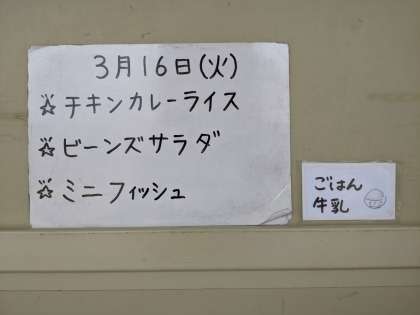 3月16日(火)
☆チキンカレーライス
☆ビーンズサラダ
☆ミニフィッシュ
ごはん
牛乳